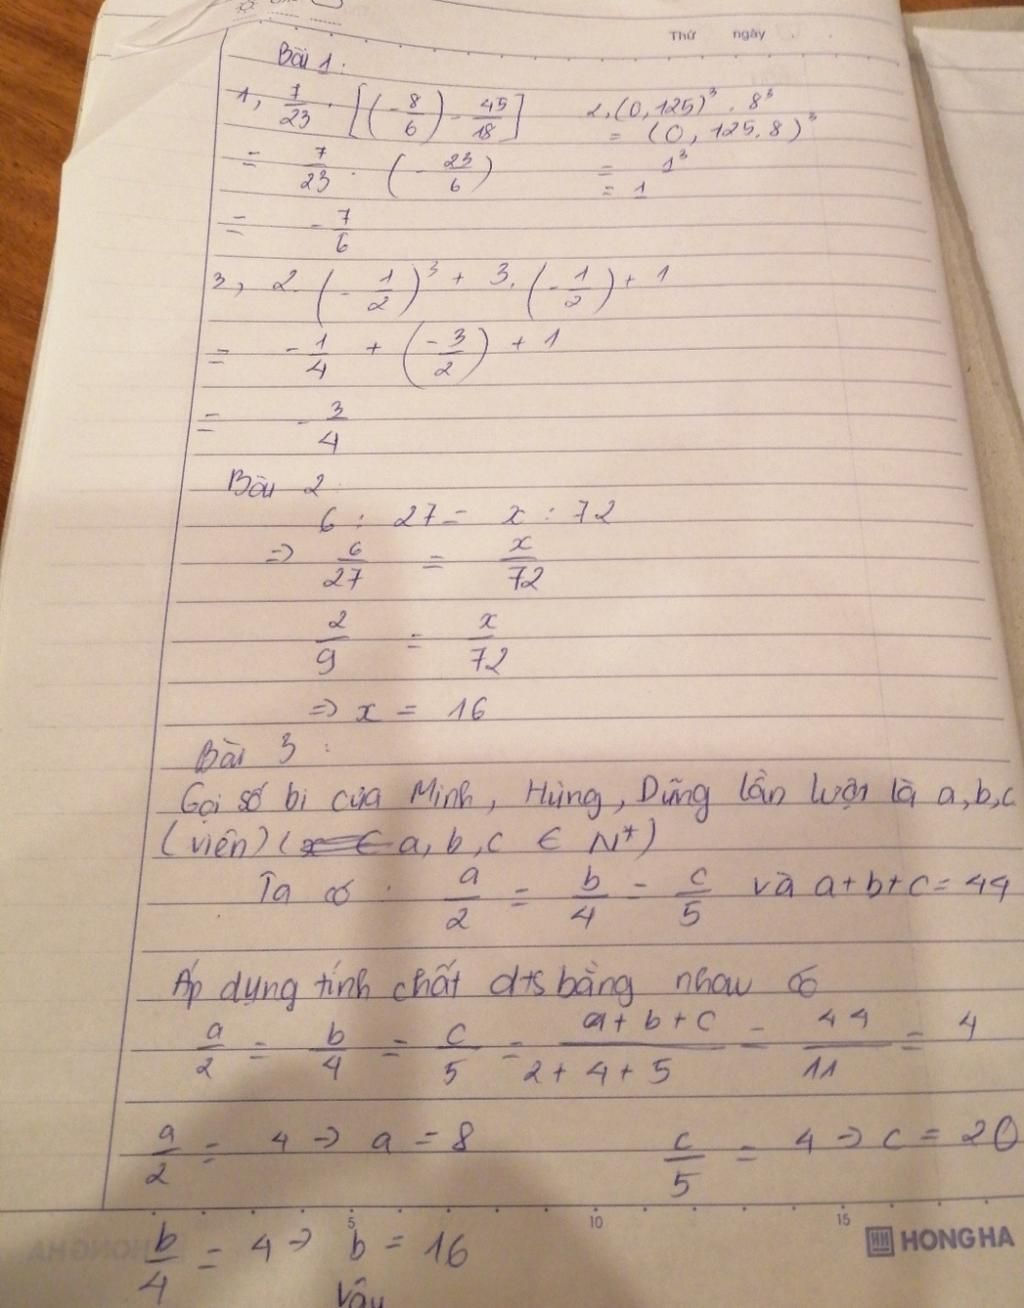 Thứ ngày
Bài 1:
1, 7/23 . [(-8/6) - 45/18]
= 7/23 . (-23/6)
= -7/6
2, (0,125)³ . 8³
= (0,125.8)³
= 1³
= 1
3, 2. (-1/2)³ + 3. (-1/2) + 1
= -1/4 + (-3/2) + 1
= -3/4
Bài 2
6 : 27 = x : 72
=> 6/27 = x/72
2/9 = x/72
=> x = 16
Bài 3 :
Gọi số bi của Minh, Hùng, Dũng lần lượt là a, b, c
(viên) (a, b, c ∈ N*)
Ta có : a/2 = b/4 = c/5 và a+b+c = 44
Áp dụng tính chất dts bằng nhau có
a/2 = b/4 = c/5 = (a+b+c)/(2+4+5) = 44/11 = 4
a/2 = 4 -> a = 8 c/5 = 4 -> c = 20
5 10 15
HONG HA
b/4 = 4 -> b = 16
Vậy